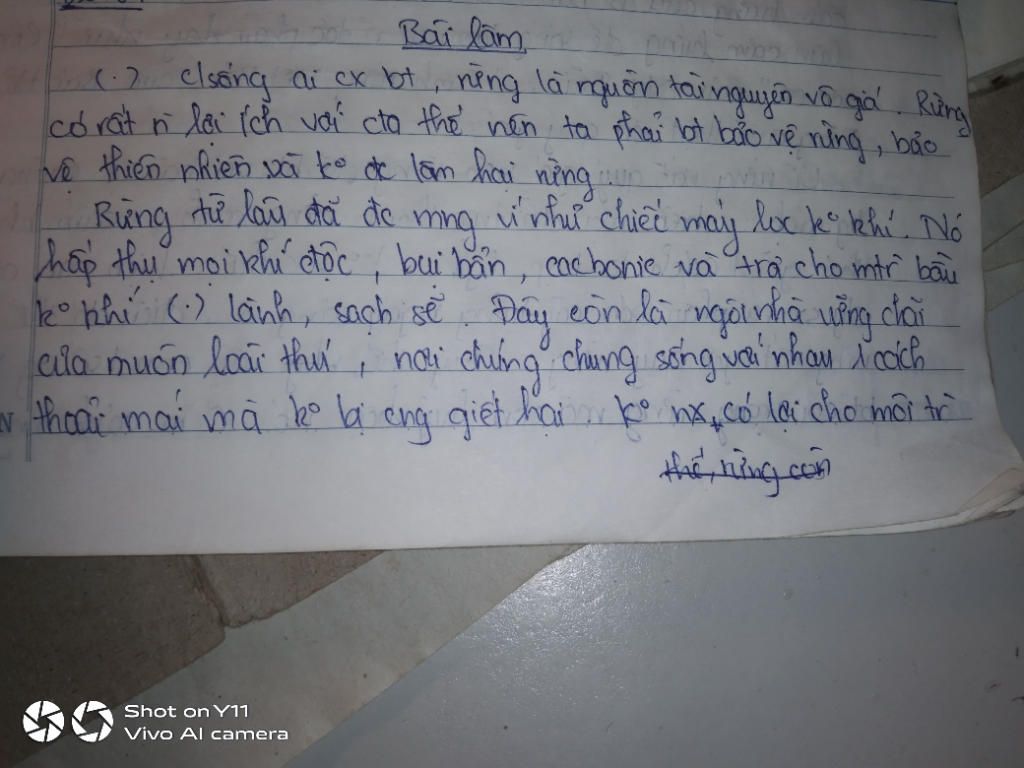 Bài làm
(.) c/sống ai cx bt, rừng là nguồn tài nguyên vô giá. Rừng
có rất n lợi ích với cta thế nên ta phải bt bảo vệ rừng, bảo
vệ thiên nhiên và ko đc làm hại rừng.
Rừng từ lâu đã đc mng ví như chiếc máy lọc ko khí. Nó
hấp thụ mọi khí độc, bụi bẩn, cacbonic và trả cho mtr bầu
ko khí (.) lành, sạch sẽ. Đây còn là ngôi nhà vững chãi
của muôn loài thú, nơi chúng chung sống với nhau 1 cách
thoải mái mà ko bị cng giết hại. Ko nx, có lợi cho môi tr
thế, rừng còn
Shot on Y11
Vivo AI camera